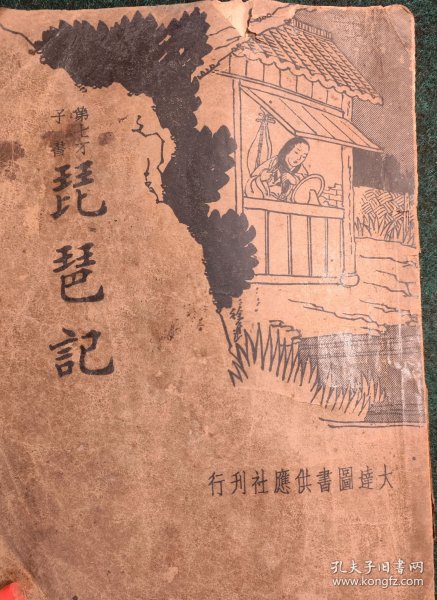 第七才
子書
琵琶記
大達圖書供應社刊行
孔夫子旧书网
www.kongfz.com